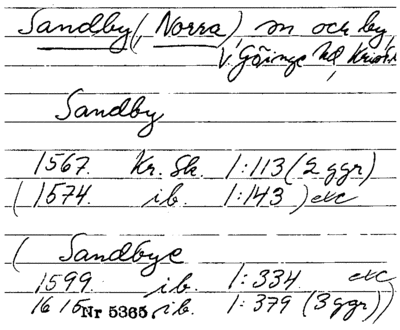 Sandby (, Norra) sn och by,
V. Göinge hd, Krist. l.
Sandby
1567. Kr. Sk. 1:113 (2 ggr)
(1574. ib. 1:143) etc
( Sandbye
1599. ib. 1:334 etc
1615 Nr 5365 ib. 1:379 (3 ggr))